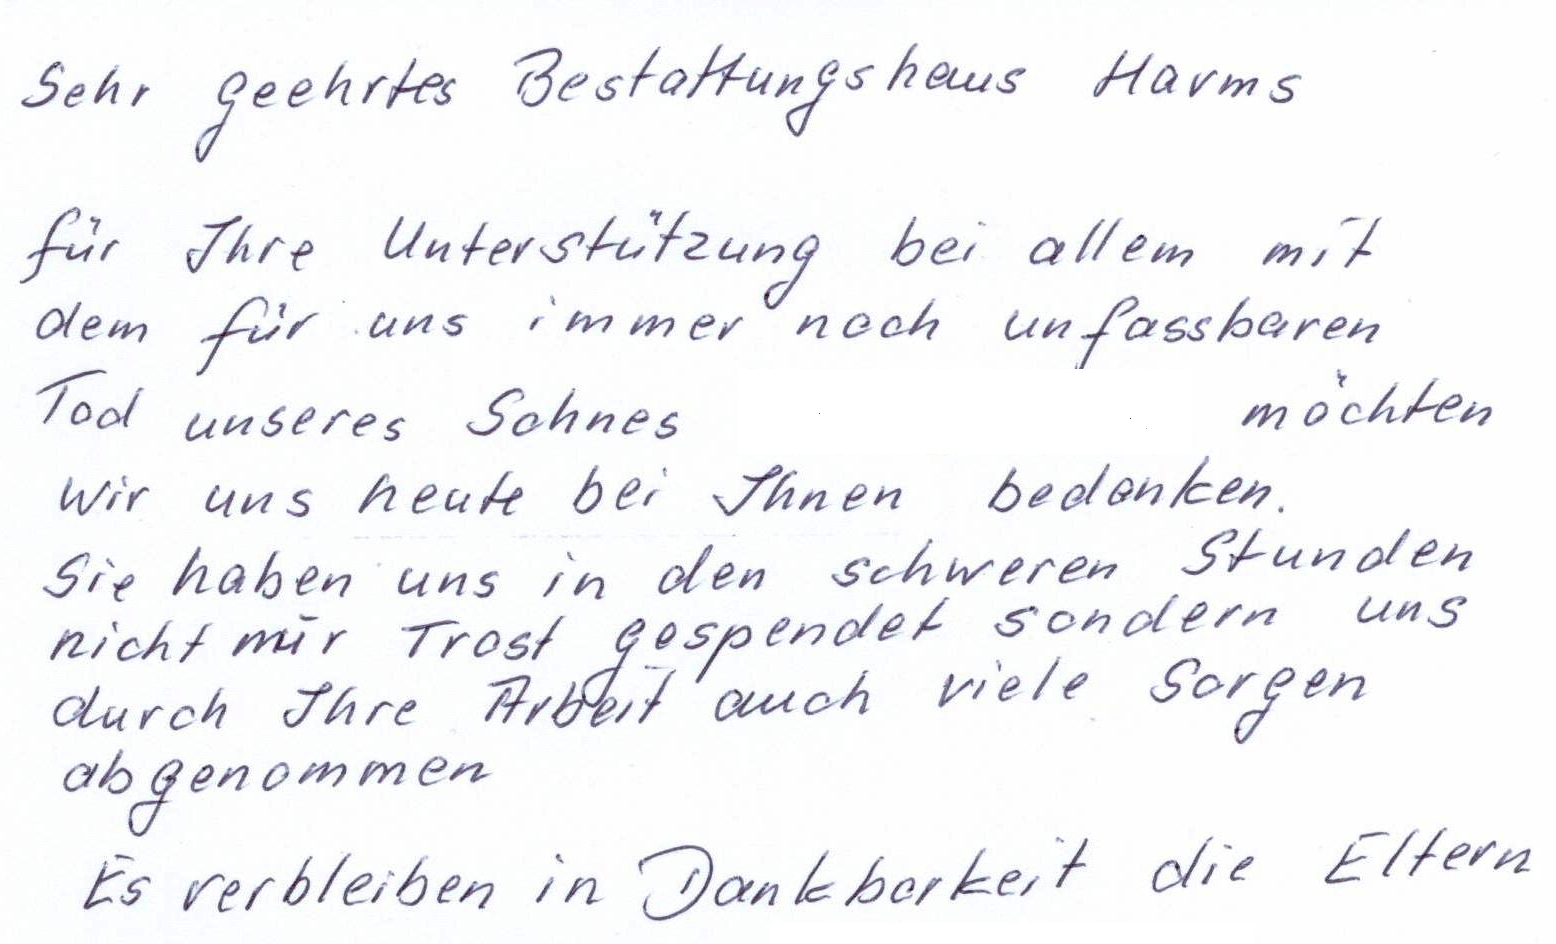 Sehr geehrtes Bestattungshaus Harms
für Ihre Unterstützung bei allem mit
dem für uns immer noch unfassbaren
Tod unseres Sohnes möchten
wir uns heute bei Ihnen bedanken.
Sie haben uns in den schweren Stunden
nicht nur Trost gespendet sondern uns
durch Ihre Arbeit auch viele Sorgen
abgenommen
Es verbleiben in Dankbarkeit die Eltern